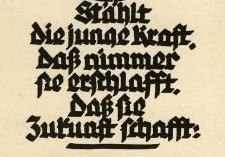 Stählt
die junge Kraft,
daß nimmer
sie erschlafft,
Daß sie
Zukunft schafft: